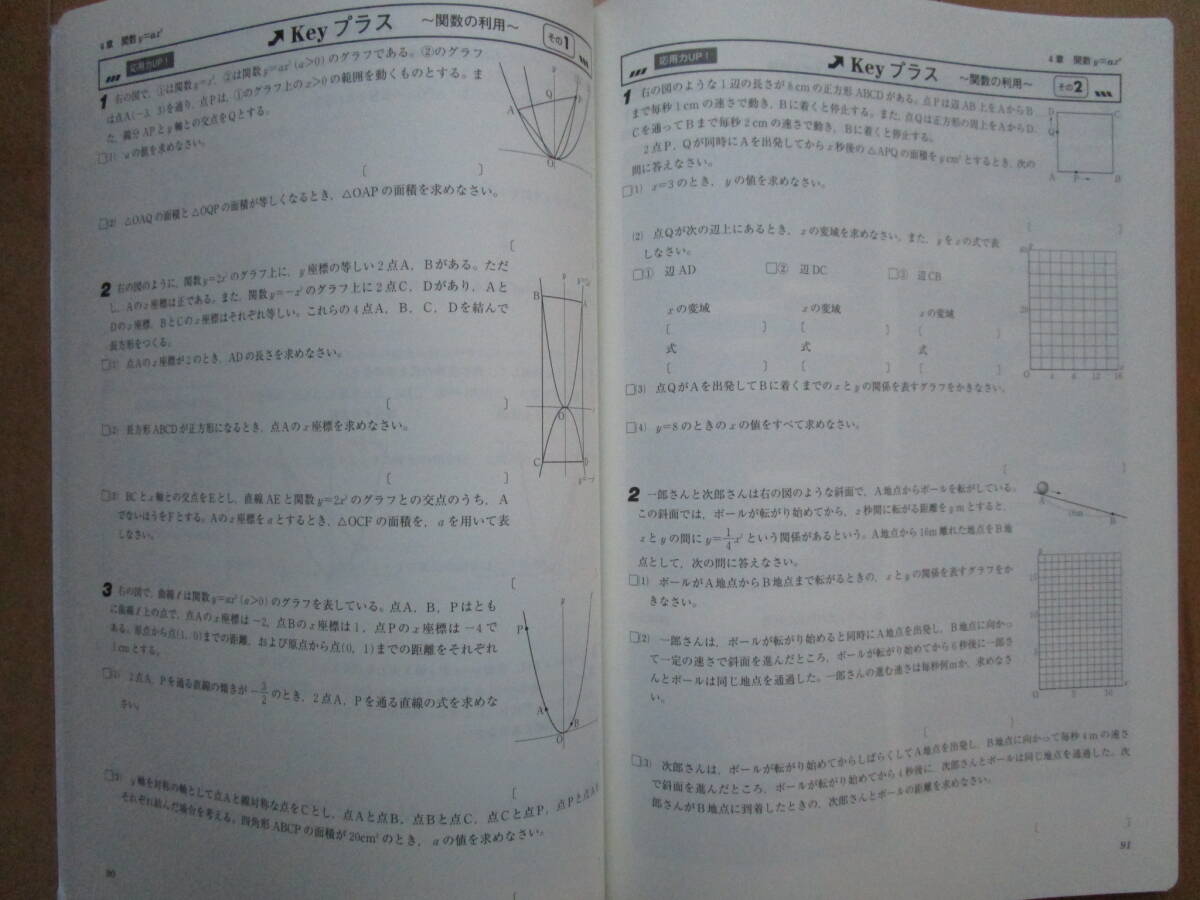 4章 関数 y=ax²
Keyプラス ～関数の利用～ その1
応用力UP！
1 右の図で，①は関数y=x²，②は関数y=ax²(a>0)のグラフである。②のグラフ
は点A(−3, 3)を通り，点Pは，①のグラフ上のx>0の範囲を動くものとする。ま
た，線分APとy軸との交点をQとする。
□(1) aの値を求めなさい。
〔 〕
□(2) △OAQの面積と△OQPの面積が等しくなるとき，△OAPの面積を求めなさい。
〔
y
Q
P
A
O
2 右の図のように，関数y=2x²のグラフ上に，y座標の等しい2点A，Bがある。ただ
し，Aのx座標は正である。また，関数y=−x²のグラフ上に2点C，Dがあり，Aと
Dのx座標，BとCのx座標はそれぞれ等しい。これらの4点A，B，C，Dを結んで
長方形をつくる。
□(1) 点Aのx座標が2のとき，ADの長さを求めなさい。
〔 〕
□(2) 長方形ABCDが正方形になるとき，点Aのx座標を求めなさい。
〔 〕
□(3) BCとx軸との交点をEとし，直線AEと関数y=2x²のグラフとの交点のうち，A
でないほうをFとする。Aのx座標をaとするとき，△OCFの面積を，aを用いて表
しなさい。
〔
y
B
A
O
C
D
3 右の図で，曲線ℓは関数y=ax²(a>0)のグラフを表している。点A，B，Pはとも
に曲線ℓ上の点で，点Aのx座標は−2，点Bのx座標は1，点Pのx座標は−4で
ある。原点から点(1, 0)までの距離，および原点から点(0, 1)までの距離をそれぞれ
1cmとする。
2点A，Pを通る直線の傾きが−3/2のとき，2点A，Pを通る直線の式を求めな
さい。
〔
y軸を対称の軸として点Aと線対称な点をCとし，点Aと点B，点Bと点C，点Cと点P，点Pと点Aを
それぞれ結んだ場合を考える。四角形ABCPの面積が20cm²のとき，aの値を求めなさい。
〔
y
P
A
B
O
90
4章 関数 y=ax²
Keyプラス ～関数の利用～ その2
応用力UP！
1 右の図のような1辺の長さが8cmの正方形ABCDがある。点Pは辺AB上をAからB
まで毎秒1cmの速さで動き，Bに着くと停止する。また，点Qは正方形の周上をAからD，
Cを通ってBまで毎秒2cmの速さで動き，Bに着くと停止する。
2点P，Qが同時にAを出発してからx秒後の△APQの面積をycm²とするとき，次の
問に答えなさい。
□(1) x=3のとき，yの値を求めなさい。
〔 〕
D C
Q
A P B
(2) 点Qが次の辺上にあるとき，xの変域を求めなさい。また，yをxの式で表
しなさい。
□① 辺AD □② 辺DC □③ 辺CB
xの変域 xの変域 xの変域
〔 〕 〔 〕 〔 〕
式 式 式
〔 〕 〔 〕 〔 〕
□(3) 点QがAを出発してBに着くまでのxとyの関係を表すグラフをかきなさい。
□(4) y=8のときのxの値をすべて求めなさい。
〔 〕
40
20
O 4 8 12 16
2 一郎さんと次郎さんは右の図のような斜面で，A地点からボールを転がしている。
この斜面では，ボールが転がり始めてから，x秒間に転がる距離をymとすると，
xとyの間にy=1/4x²という関係があるという。A地点から16m離れた地点をB地
点として，次の問に答えなさい。
□(1) ボールがA地点からB地点まで転がるときの，xとyの関係を表すグラフをか
きなさい。
□(2) 一郎さんは，ボールが転がり始めると同時にA地点を出発し，B地点に向かっ
て一定の速さで斜面を進んだところ，ボールが転がり始めてから6秒後に一郎さ
んとボールは同じ地点を通過した。一郎さんの進む速さは毎秒何mか，求めなさ
い。
〔 〕
□(3) 次郎さんは，ボールが転がり始めてからしばらくしてA地点を出発し，B地点に向かって毎秒4mの速さ
で斜面を進んだところ，ボールが転がり始めてから4秒後に，次郎さんとボールは同じ地点を通過した。次
郎さんがB地点に到着したときの，次郎さんとボールの距離を求めなさい。
〔 〕
A
16m
B
15
10
5
O 5 10
91